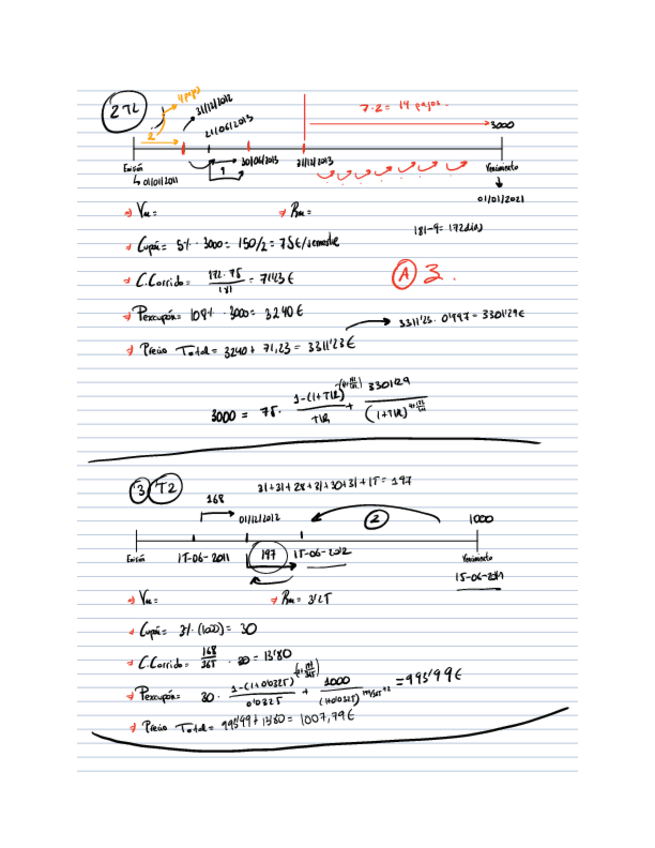 2 T2
4 pagos
2
31/12/2012
21/06/2013
7·2 = 14 pagos.
3000
Emisión
↳ 01/01/2011
1
30/06/2013
31/12/2013
Vencimiento
01/01/2021
Vm =
Rm =
181-9 = 172 días
Cupón = 5% · 3000 = 150/2 = 75€/semestre
C.Corrido = 172·75 / 181 = 71'23 €
A 3.
Pexcupón = 108% · 3000 = 3240 €
3311'23 · 0'997 = 3301'29€
Precio Total = 3240 + 71,23 = 3311'23€
3000 = 75 · 1-(1+TIR) / TIR + 3301'29 / (1+TIR)
3 T2
168
31+31+28+31+30+31+15 = 197
01/12/2012
2
1000
Emisión
15-06-2011
197
15-06-2012
Vencimiento
Vm =
Rm = 3'25
Cupón = 3% · (1000) = 30
C.Corrido = 168 / 365 · 30 = 13'80
Pexcupón = 30 · 1-(1+0'0325) / 0'0325 + 1000 / (1+0'0325) = 993'99€
Precio Total = 993'99 + 13'80 = 1007,79€